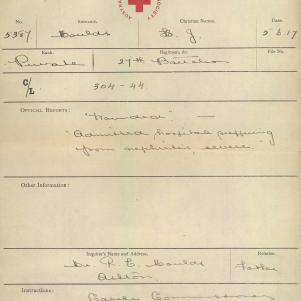 AUSTR
SOCIETY
No. Surname. Christian Names. Date.
5387 Moulds H. J. 5.6.17
Rank. Regiment, &c. File No.
Private 27th Battalion
C/L. 304-44.
OFFICIAL REPORTS:
"Wounded" —
"Admitted hospital suffering
from nephritis, severe."
Other Information:
Inquirer's Name and Address. Relation.
Mr. R. C. Moulds Father
Instructions:
Commissioner